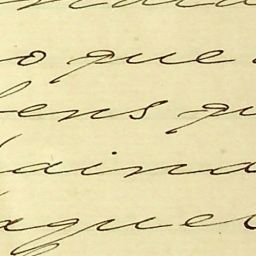 o que
bens qu
ainda
aquel